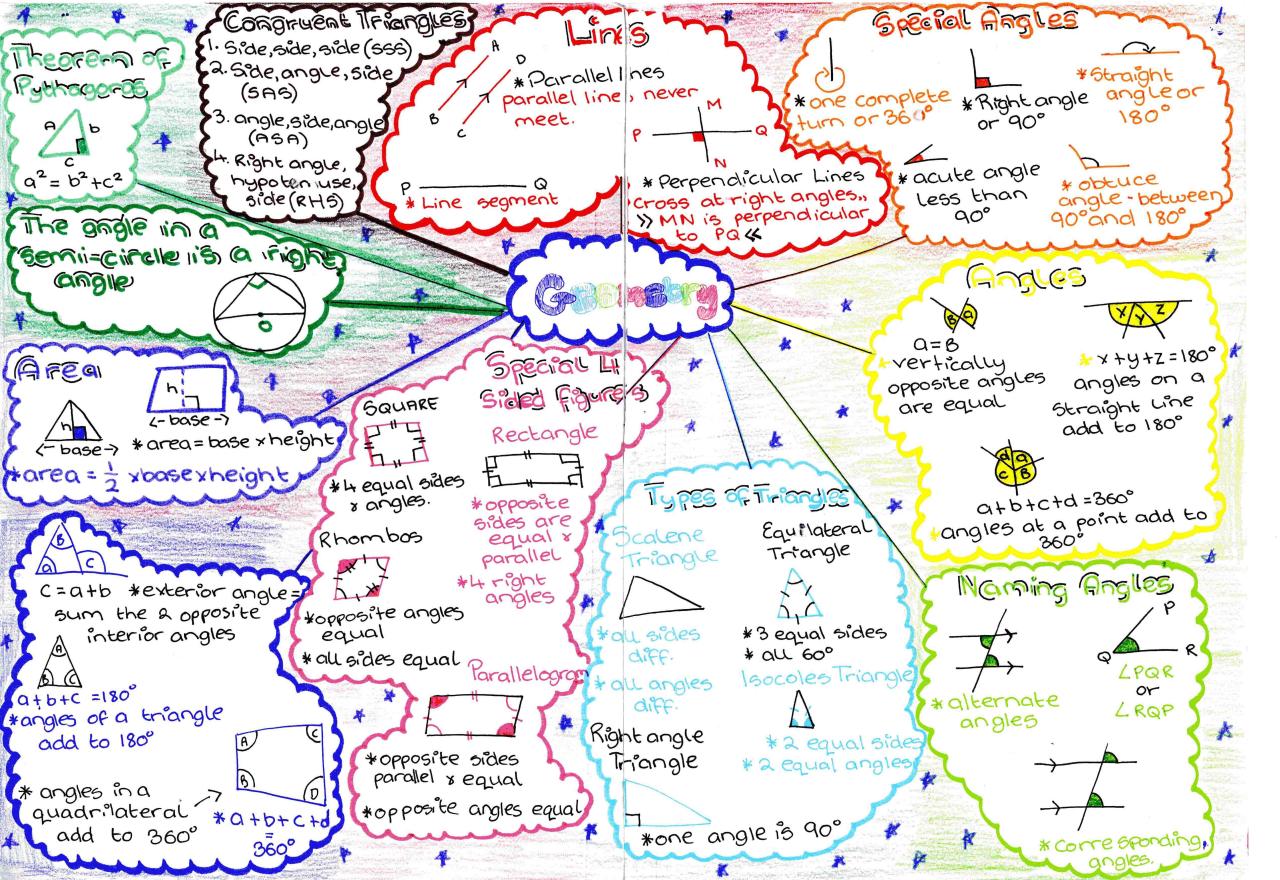 Theorem of
Pythagoras
A
b
C
a² = b² + c²
Congruent Triangles
1. Side, side, side (SSS)
2. Side, angle, side
(SAS)
3. angle, side, angle
(ASA)
4. Right angle,
hypotenuse,
side (RHS)
Lines
A
D
B
C
* Parallel lines
parallel lines, never
meet.
M
P
Q
N
P
Q
* Line segment
* Perpendicular Lines
cross at right angles..
» MN is perpendicular
to PQ «
Special Angles
* one complete
turn or 360°
* Right angle
or 90°
* Straight
angle or
180°
* acute angle
less than
90°
* obtuce
angle - between
90° and 180°
The angle in a
semi-circle is a right
angle
o
Geometry
Angles
B
a
a = B
* vertically
opposite angles
are equal
x
y
z
* x + y + z = 180°
angles on a
Straight Line
add to 180°
d
a
c
B
a + b + c + d = 360°
* angles at a point add to
360°
Area
h
<- base ->
h
<- base ->
* area = base x height
* area = 1/2 x base x height
Special 4
Sided figures
SQUARE
* 4 equal sides
& angles.
Rectangle
* opposite
sides are
equal &
parallel
* 4 right
angles
Rhombos
* opposite angles
equal
* all sides equal
Parallelogram
* opposite sides
parallel & equal
* opposite angles equal
B
a
C
C = a + b * exterior angle =
sum the 2 opposite
interior angles
A
B
C
a + b + c = 180°
* angles of a triangle
add to 180°
A
C
B
D
* angles in a
quadrilateral
add to 360°
* a + b + c + d
=
360°
Types of Triangles
Scalene
Triangle
* all sides
diff.
* all angles
diff.
Equilateral
Triangle
* 3 equal sides
* all 60°
Isocoles Triangle
* 2 equal sides
* 2 equal angles
Right angle
Triangle
* one angle is 90°
Naming Angles
* alternate
angles
P
Q
R
∠PQR
or
∠RQP
* corresponding
angles.